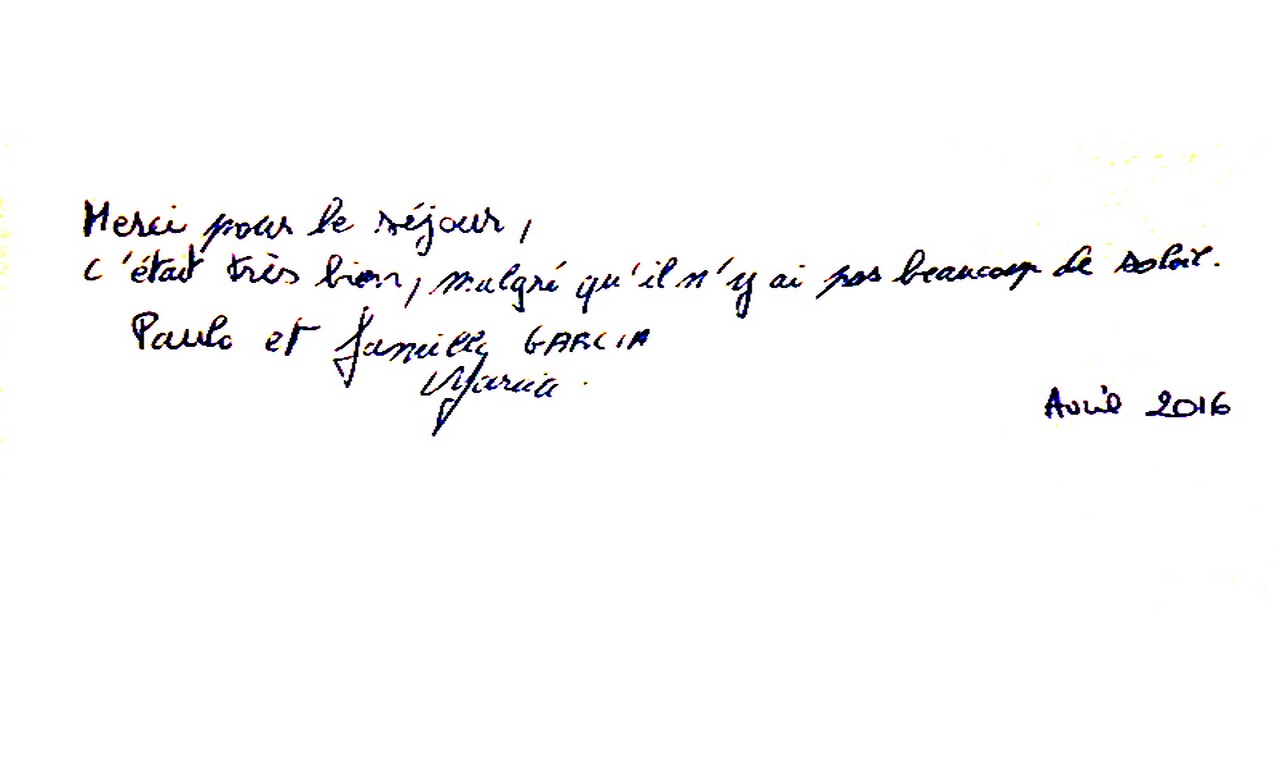 Merci pour le séjour,
c'était très bien, malgré qu'il n'y ai pas beaucoup de soleil.
Paulo et famille GARCIA
Maria.
Avril 2016